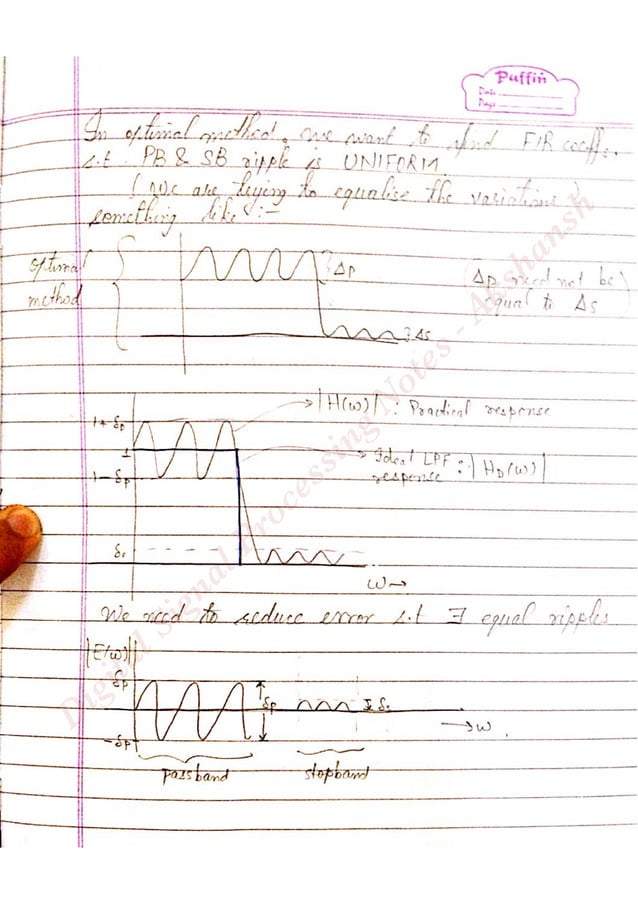 Puffin
Date
Page
In optimal method, we want to find FIR coeffs.
s.t. PB & SB ripple is UNIFORM.
(we are trying to equalise the variations)
something like :-
optimal method
Δp
Δs
(Δp need not be equal to Δs)
1+δp
1
1-δp
|H(ω)| : Practical response
Ideal LPF response : |HD(ω)|
δs
ω→
We need to reduce error s.t ∃ equal ripples
|E(ω)|
δp
-δp
δp
δs
→ω
passband
stopband
Digital Signal Processing Notes - Akshansh